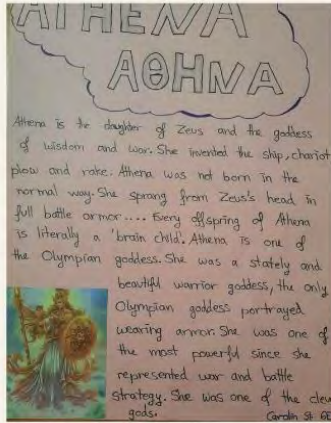 ATHENA
ΑΘΗΝΑ
Athena is the daughter of Zeus and the goddess
of wisdom and war. She invented the ship, chariot
plow and rake. Athena was not born in the
normal way. She sprang from Zeus's head in
full battle armor.... Every offspring of Athena
is literally a 'brain child'. Athena is one of
the Olympian goddess. She was a stately and
beautiful warrior goddess, the only
Olympian goddess portrayed
wearing armor. She was one of
the most powerful since she
represented war and battle
strategy. She was one of the
gods.